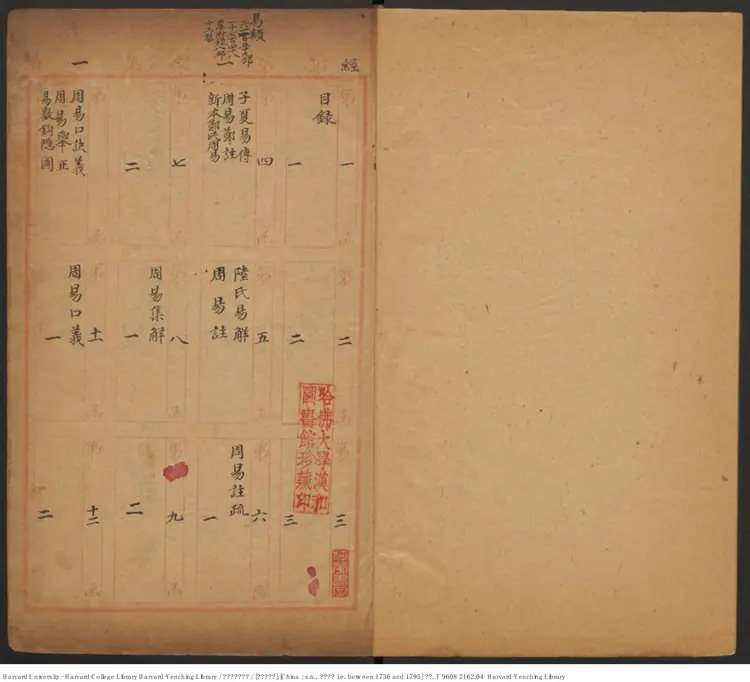 經
易類
一
第一函
目錄
一
第二函
二
第三函
三
第四函
子夏易傳
周易鄭註
新本鄭氏周易
第五函
陸氏易解
周易註
第六函
周易註疏
一
第七函
二
第八函
周易集解
一
第九函
二
周易口訣義
周易舉正
易數鈎隱圖
第十一函
周易口義
一
第十二函
二
哈佛大學漢和
圖書館珍藏印
Harvard University - Harvard College Library Harvard-Yenching Library / ??????? / [?????]. [China : s.n., ???? i.e. between 1736 and 1795] ??. T 9608 2162.04 Harvard-Yenching Library